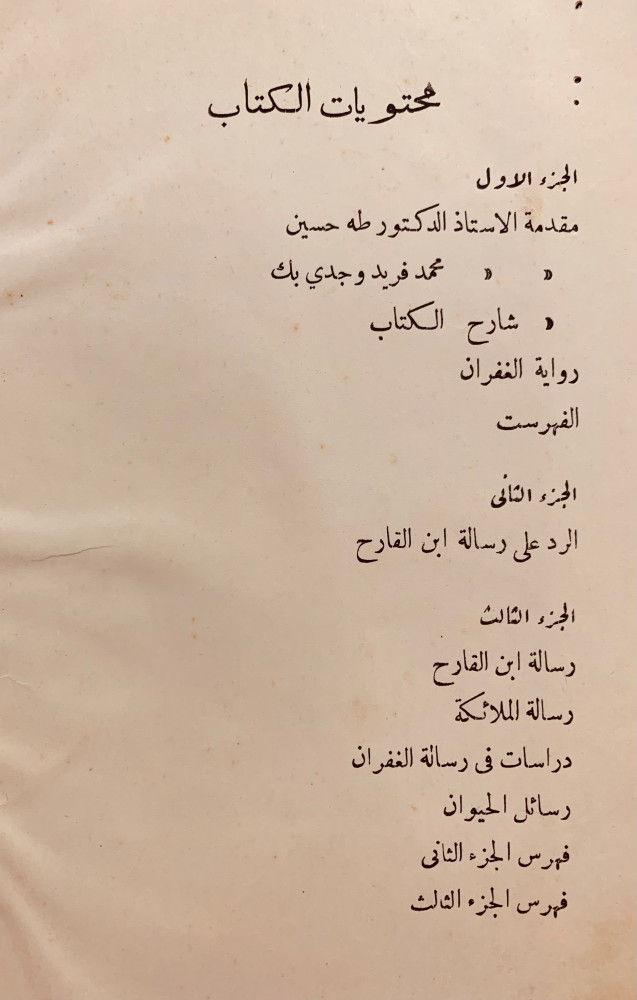 محتويات الكتاب
الجزء الاول
مقدمة الاستاذ الدكتور طه حسين
» » محمد فريد وجدي بك
» شارح الكتاب
رواية الغفران
الفهرست
الجزء الثانى
الرد على رسالة ابن القارح
الجزء الثالث
رسالة ابن القارح
رسالة الملائكة
دراسات فى رسالة الغفران
رسائل الحيوان
فهرس الجزء الثانى
فهرس الجزء الثالث